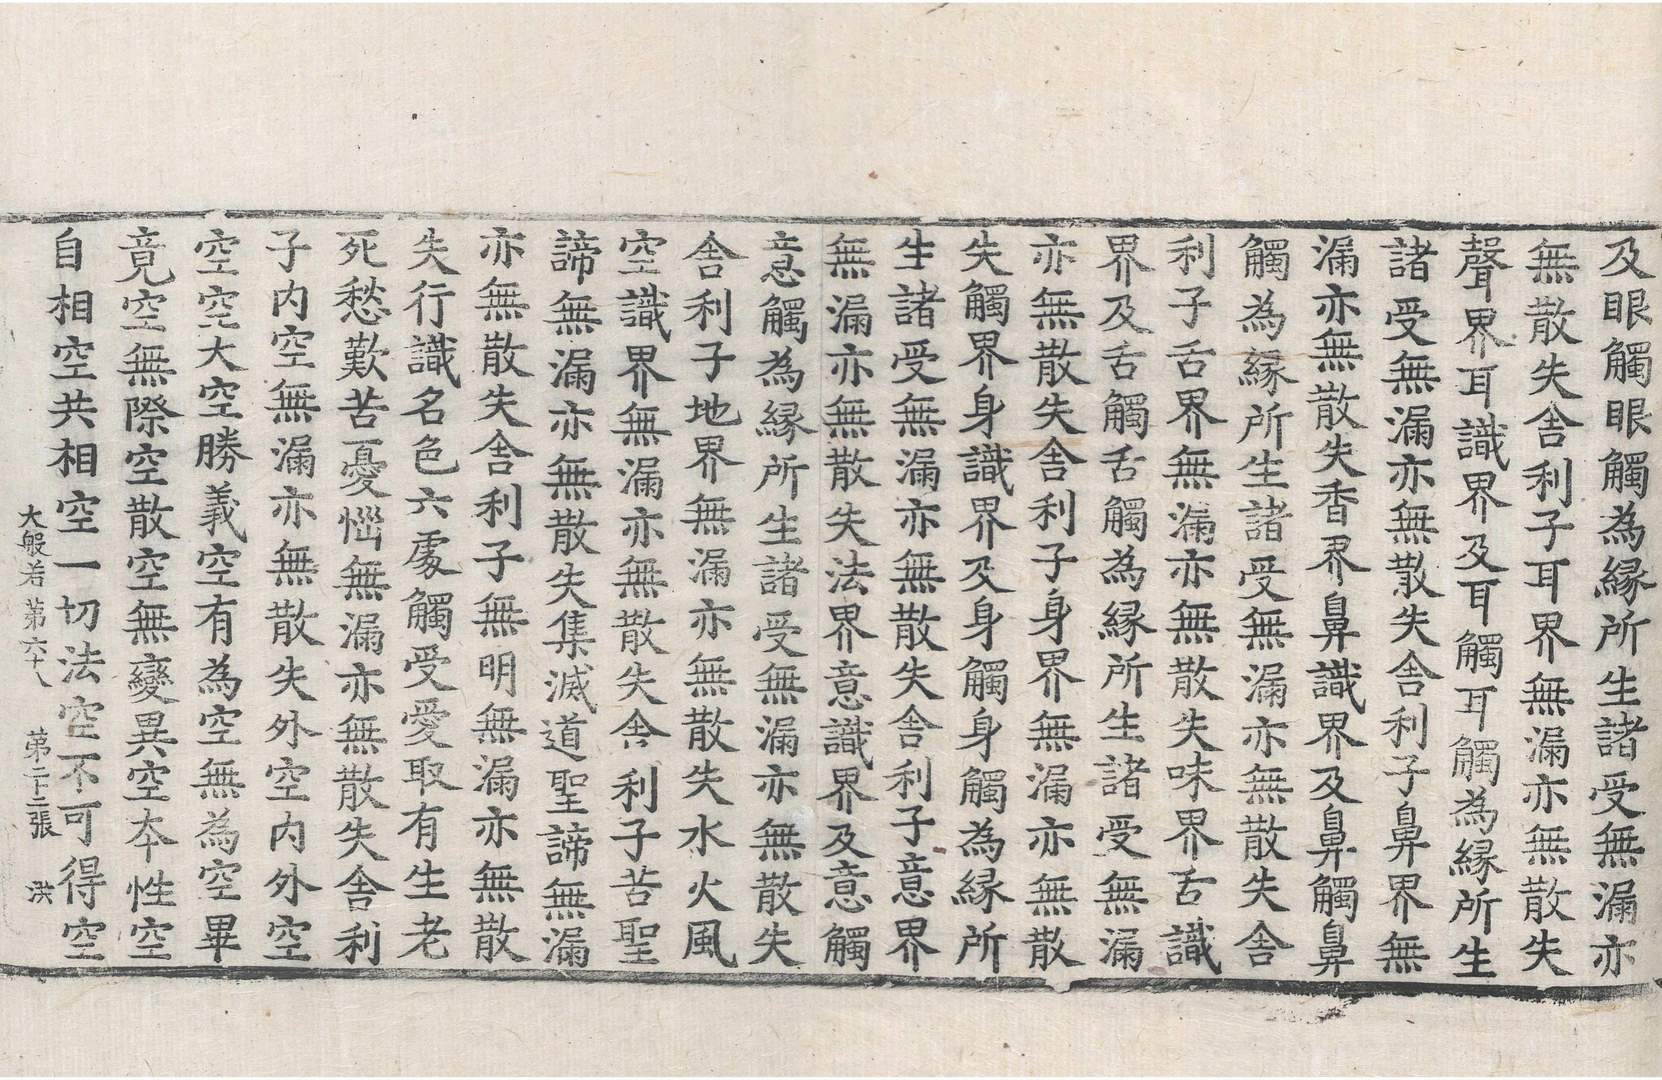 及眼觸眼觸為縁所生諸受無漏亦
無散失舍利子耳界無漏亦無散失
聲界耳識界及耳觸耳觸為縁所生
諸受無漏亦無散失舍利子鼻界無
漏亦無散失香界鼻識界及鼻觸鼻
觸為縁所生諸受無漏亦無散失舍
利子舌界無漏亦無散失味界舌識
界及舌觸舌觸為縁所生諸受無漏
亦無散失舍利子身界無漏亦無散
失觸界身識界及身觸身觸為縁所
生諸受無漏亦無散失舍利子意界
無漏亦無散失法界意識界及意觸
意觸為縁所生諸受無漏亦無散失
舍利子地界無漏亦無散失水火風
空識界無漏亦無散失舍利子苦聖
諦無漏亦無散失集滅道聖諦無漏
亦無散失舍利子無明無漏亦無散
失行識名色六處觸受愛取有生老
死愁歎苦憂惱無漏亦無散失舍利
子内空無漏亦無散失外空内外空
空空大空勝義空有為空無為空畢
竟空無際空散空無變異空本性空
自相空共相空一切法空不可得空
大般若第六十八 第二十二張 洪